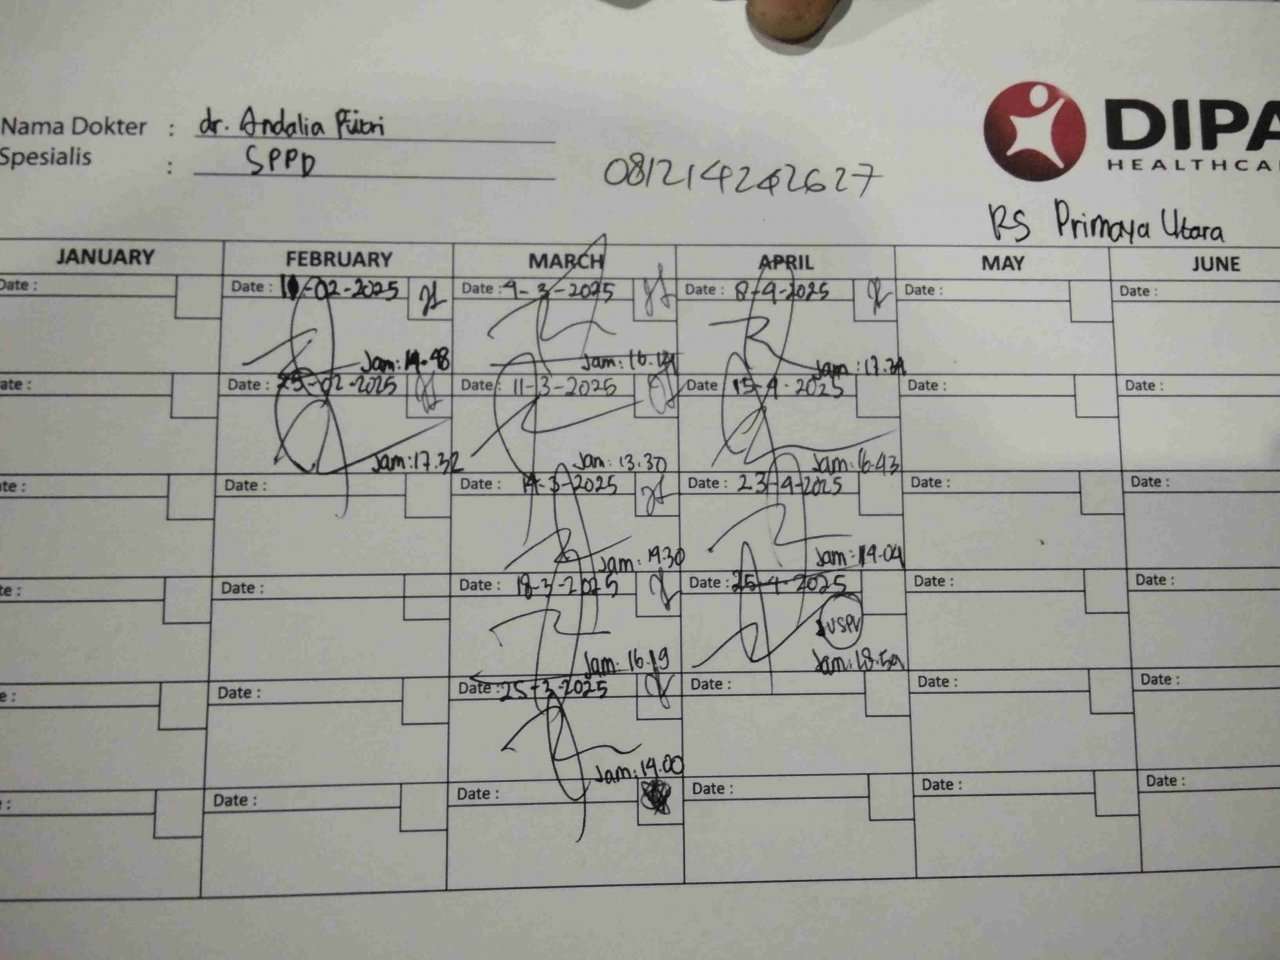 Nama Dokter : dr. Andalia Futri
Spesialis : SPPD
081214242627
DIPA
HEALTHCA
RS Primaya Utara
JANUARY FEBRUARY MARCH APRIL MAY JUNE
Date : Date : -02-2025 Date : 4-3-2025 Date : 8-4-2025 Date : Date :
Jam: 14.48 Jam: 16. Jam: 17.34
ate : Date : 25-02-2025 Date : 11-3-2025 Date 15-4-2025 Date : Date :
Jam: 17.32 Jam: 13.30 Jam: 16.43
te : Date : Date : 14-3-2025 Date : 23-4-2025 Date : Date :
Jam: 14.30 Jam: 14.04
e : Date : Date : 18-3-2025 Date : 25-4-2025 Date : Date :
Jam: 16.19 Jam: 18.59
e : Date : Date : 25-3-2025 Date : Date : Date :
Jam: 14.00
: Date : Date : Date : Date : Date :